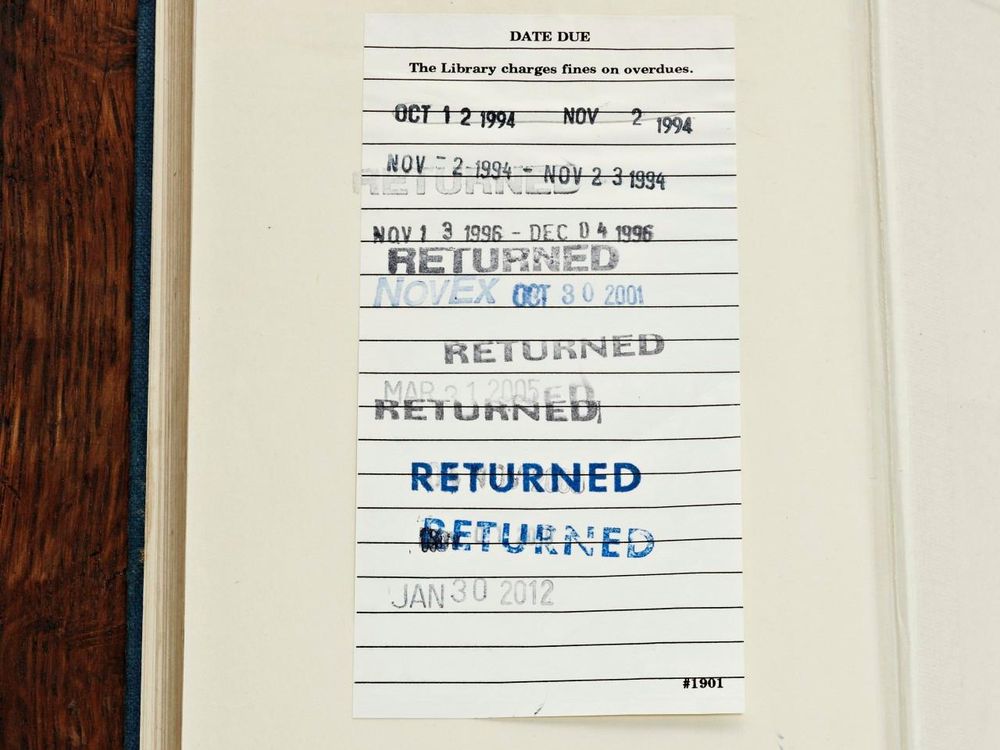 DATE DUE
The Library charges fines on overdues.
OCT 1 2 1994 NOV 2 1994
NOV - 2 1994 - NOV 2 3 1994
RETURNED
NOV 1 3 1996 - DEC 0 4 1996
RETURNED
NOVEX OCT 3 0 2001
RETURNED
MAR 3 1 2005
RETURNED
RETURNED
RETURNED
JAN 30 2012
#1901